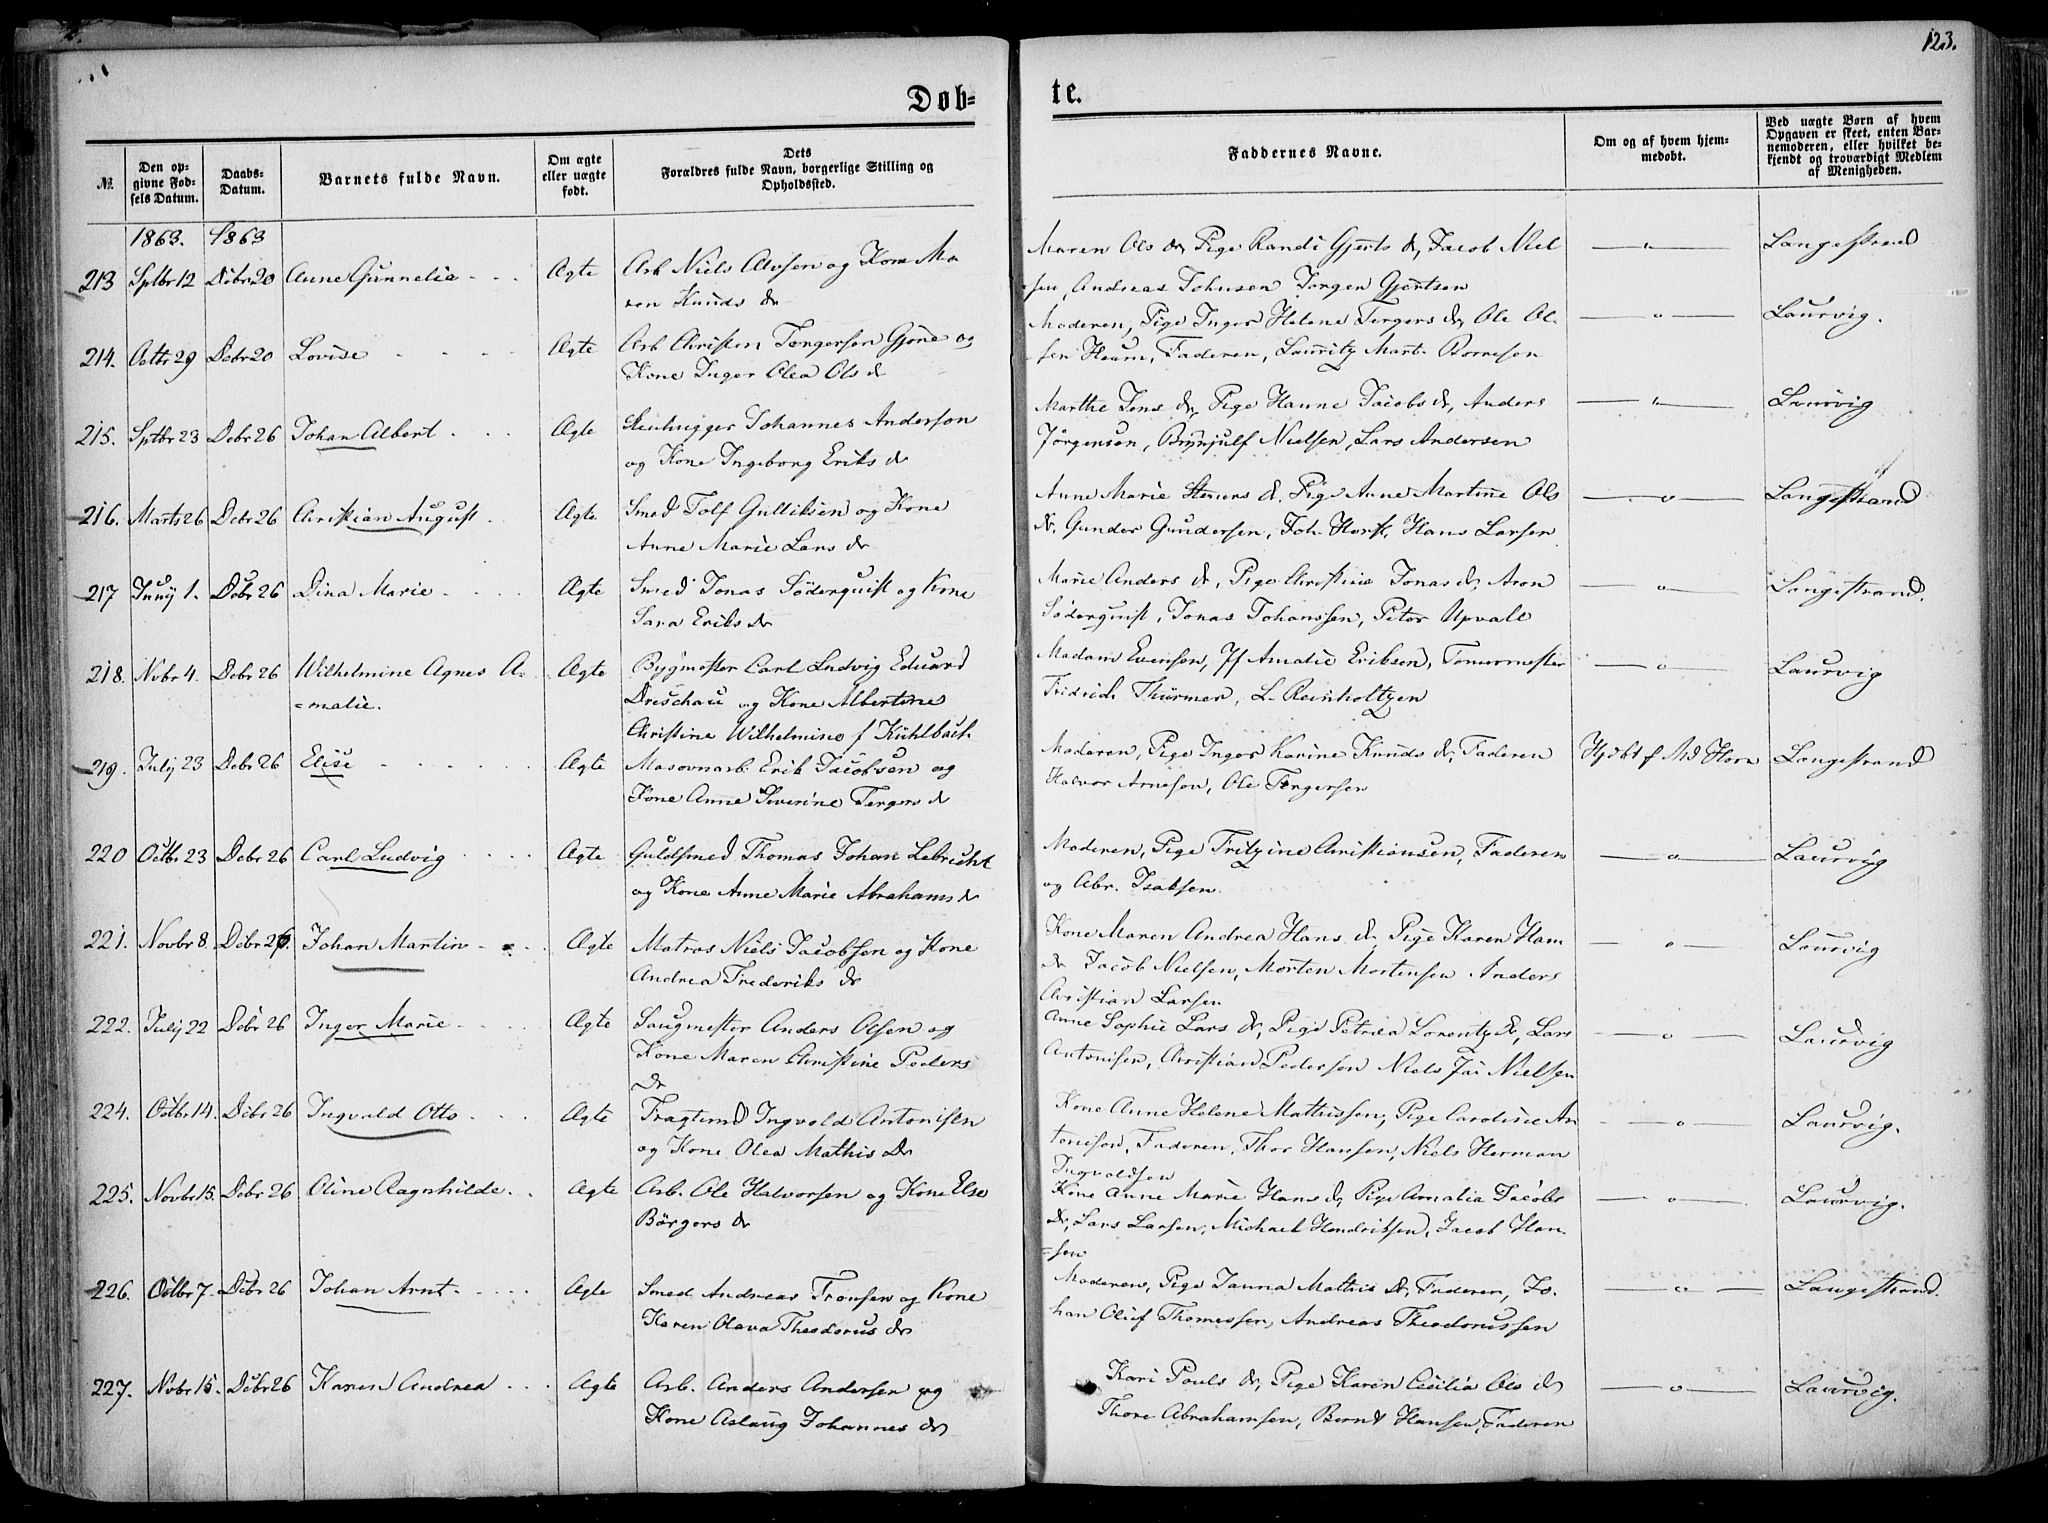 123.
Døb=
te.
№
Den op-
givne Fød-
sels Datum.
Daabs-
Datum.
Barnets fulde Navn.
Om ægte
eller uægte
født.
Dets
Forældres fulde Navn, borgerlige Stilling og
Opholdssted.
Faddernes Navne.
Om og af hvem hjem-
medøbt.
Ved uægte Børn af hvem
Opgaven er skeet, enten Bar-
nemoderen, eller hvilket be-
kjendt og troværdigt Medlem
af Menigheden.
1863. 1863
213 Sptbr 12 Dcbr 20 Anne Gunnelia - - . Ægte Arb Niels Alvsen og Kone Ma
ren Knuds dr
Maren Ols dr, Pige Randi Gjerts dr, Jacob Niel
sen, Andreas Johnsen Jørgen Gjertsen
—"— Langestrand
214. Octbr 29 Dcbr 20 Lovise - - - - Ægte Arb Christen Torgersen Gjøne og
Kone Inger Olea Ols dr
Moderen, Pige Inger Helene Torgers dr, Ole Ol-
sen Houm, Faderen, Lauritz Mart. Borresen
—"— Laurvig.
215. Sptbr 23 Dcbr 26 Johan Albert . . . Ægte Steenhugger Johannes Anderson
og Kone Ingeborg Eriks dr
Marthe Jens dr, Pige Hanne Jacobs dr, Anders
Jörgensen, Brynjulf Nielsen, Lars Andersen
—"— Laurvig
216. Marts 26 Dcbr 26 Christian August . Ægte Smed Tolf Gulliksen og Kone
Anne Marie Lars dr
Anne Marie Steners dr. Pige Anne Martine Ols
dr. Gunder Gundersen, Joh. Horst, Hans Larsen
—"— Langestrand
217 Juny 1. Dcbr 26 Dina Marie - . . . Ægte Smed Jonas Söderquist og Kone
Sara Eriks dr
Marie Anders dr, Pige Christine Jonas dr, Aron
Söderquist, Jonas Johanssen, Peter Upvall
—"— Langestrand.
218. Nvbr 4. Dcbr 26 Wilhelmine Agnes A-
=malie.
Ægte Bygmester Carl Ludvig Eduard
Dreschau og Kone Albertine
Christine Wilhelmine f Kühlbach
Madam Evensen, Jf Amalie Eriksen, Tømermester
Fridrich Thürmer, L. Reinholtzen
—"— Laurvig
219. July 23 Dcbr 26 Elise - - - - - Ægte Masovnarb. Erik Jacobsen og
Kone Anne Severine Torgers dr
Moderen, Pige Inger Karine Knuds dr, Faderen
Halvor Arnesen, Ole Torgersen
Hjdbt f Md Horn Langestrand
220 Octbr 23 Dcbr 26 Carl Ludvig . . . . Ægte Guldsmed Thomas Johan Lebrecht
og Kone Anne Marie Abrahams dr
Moderen, Pige Fritzine Christiansen, Faderen
og Abr. Isaksen
—"— Laurvig
221. Novbr 8. Dcbr 26. Johan Martin - - . Ægte Matros Niels Jacobsen og Kone
Andrea Frederiks dr
Kone Maren Andrea Hans dr. Pige Karen Han
dr Jacob Nielsen, Morten Mortensen Anders
Christian Larsen
—"— Laurvig
222. July 22 Dcbr 26 Inger Marie - . . . Ægte Saugmester Anders Olsen og
Kone Maren Christine Peders
Dr
Anne Sophie Lars dr, Pige Petrea Lorentz dr, Lars
Antonisen, Christian Pedersen Niels Ja: Nielsen
—"— Laurvig
224. Octbr 14. Dcbr 26 Ingvald Otto - . . . Ægte Fragtmd Ingvald Antonisen
og Kone Olea Mathis Dr
Kone Anne Helene Mathissen, Pige Caroline An
tonisen, Faderen, Thor Hansen, Niels Herman
Ingvaldsen
—"— Laurvig.
225. Novbr 15. Dcbr 26 Oline Ragnhilde. . . Ægte Arb. Ole Halvorsen og Kone Else
Börgers dr
Kone Anne Marie Hans dr, Pige Amalia Jacobs
dr, Lars Larsen, Michael Hendriksen, Jacob Han
=sen
—"— Laurvig.
226. Octbr 7. Dcbr 26 Johan Arnt - . . . . Ægte Smed Andreas Tronsen og Kone
Karen Olava Theodorus dr
Moderen, Pige Janna Mathis dr, Faderen, Jo-
han Oluf Thomessen, Andreas Theodorussen
—"— Langestrand.
227. Nvbr 15. Dcbr 26 Karen Andrea . . . Ægte Arb. Anders Andersen og
Kone Aslaug Johannes dr
Kari Pouls dr, Pige Karen Cecilia Ols dr
Thore Abrahamsen, Bernt Hansen, Faderen
—"— Laurvig.